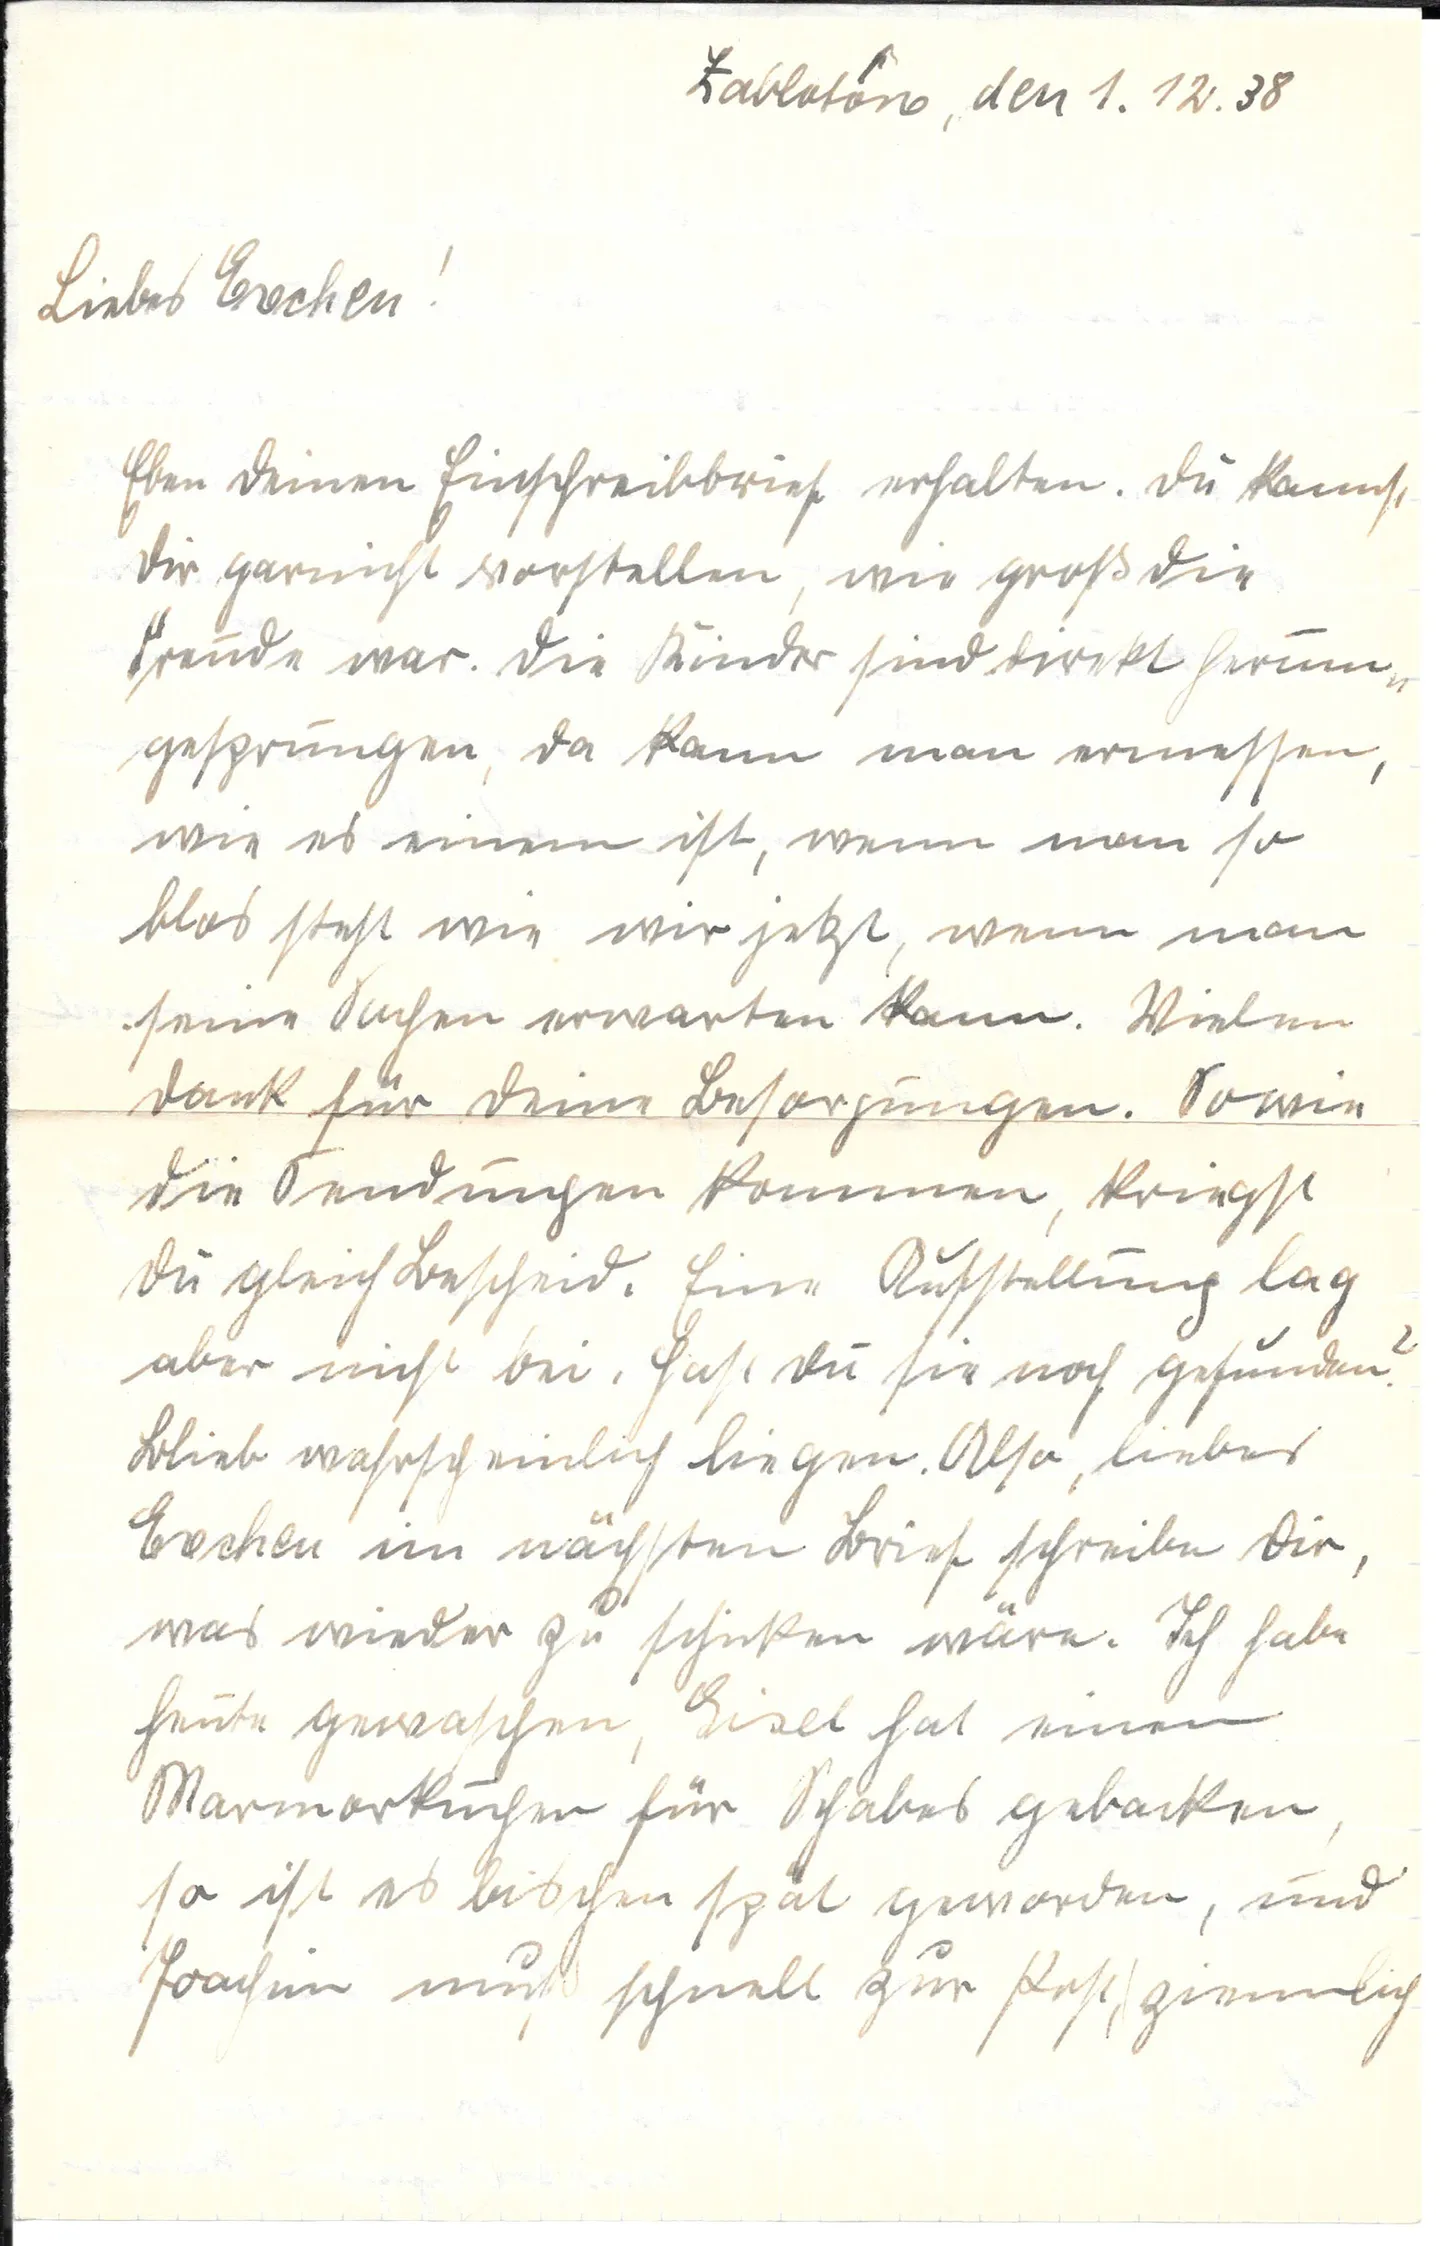 Zablotów, den 1. 12. 38
Liebes Evchen!
Eben deinen Einschreibbrief erhalten. Du kannst
dir garnicht vorstellen, wie groß die
Freude war. Die Kinder sind direkt herum-
gesprungen, da kann man ermessen,
wie es einem ist, wenn man so
blos steht wie wir jetzt, wenn man
seine Sachen erwarten kann. Vielen
Dank für deine Besorgungen. Sowie
die Sendungen kommen, kriegst
du gleich Bescheid. Eine Aufstellung lag
aber nicht bei. Hast du sie noch gefunden?
Blieb wahrscheinlich liegen. Also, liebes
Evchen im nächsten Brief schreibe Dir,
was wieder zu schicken wäre. Ich habe
heute gewaschen, Gisel hat einen
Marmorkuchen für Schabes gebacken,
so ist es bischen spät geworden, und
Joachim muß schnell zur Post, ziemlich